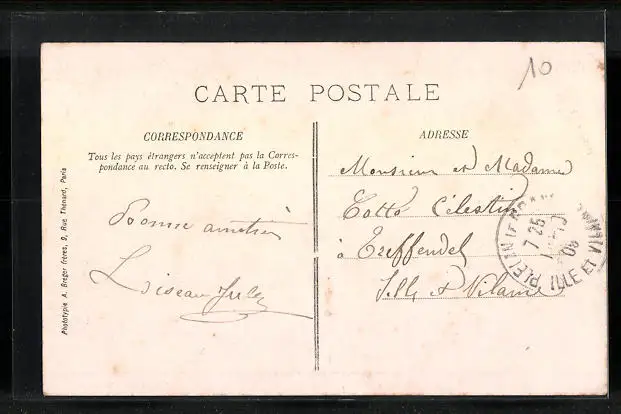 10
CARTE POSTALE
CORRESPONDANCE
Tous les pays étrangers n'acceptent pas la Corres-
pondance au recto. Se renseigner à la Poste.
Bonne amitié
Loiseau
ADRESSE
Monsieur et Madame
Totto Célestin
à Treffendel
Ille et Vilaine
7 25
08
ILLE ET VILAINE
Phototypie A. Breger frères, 9, Rue Thénard, Paris